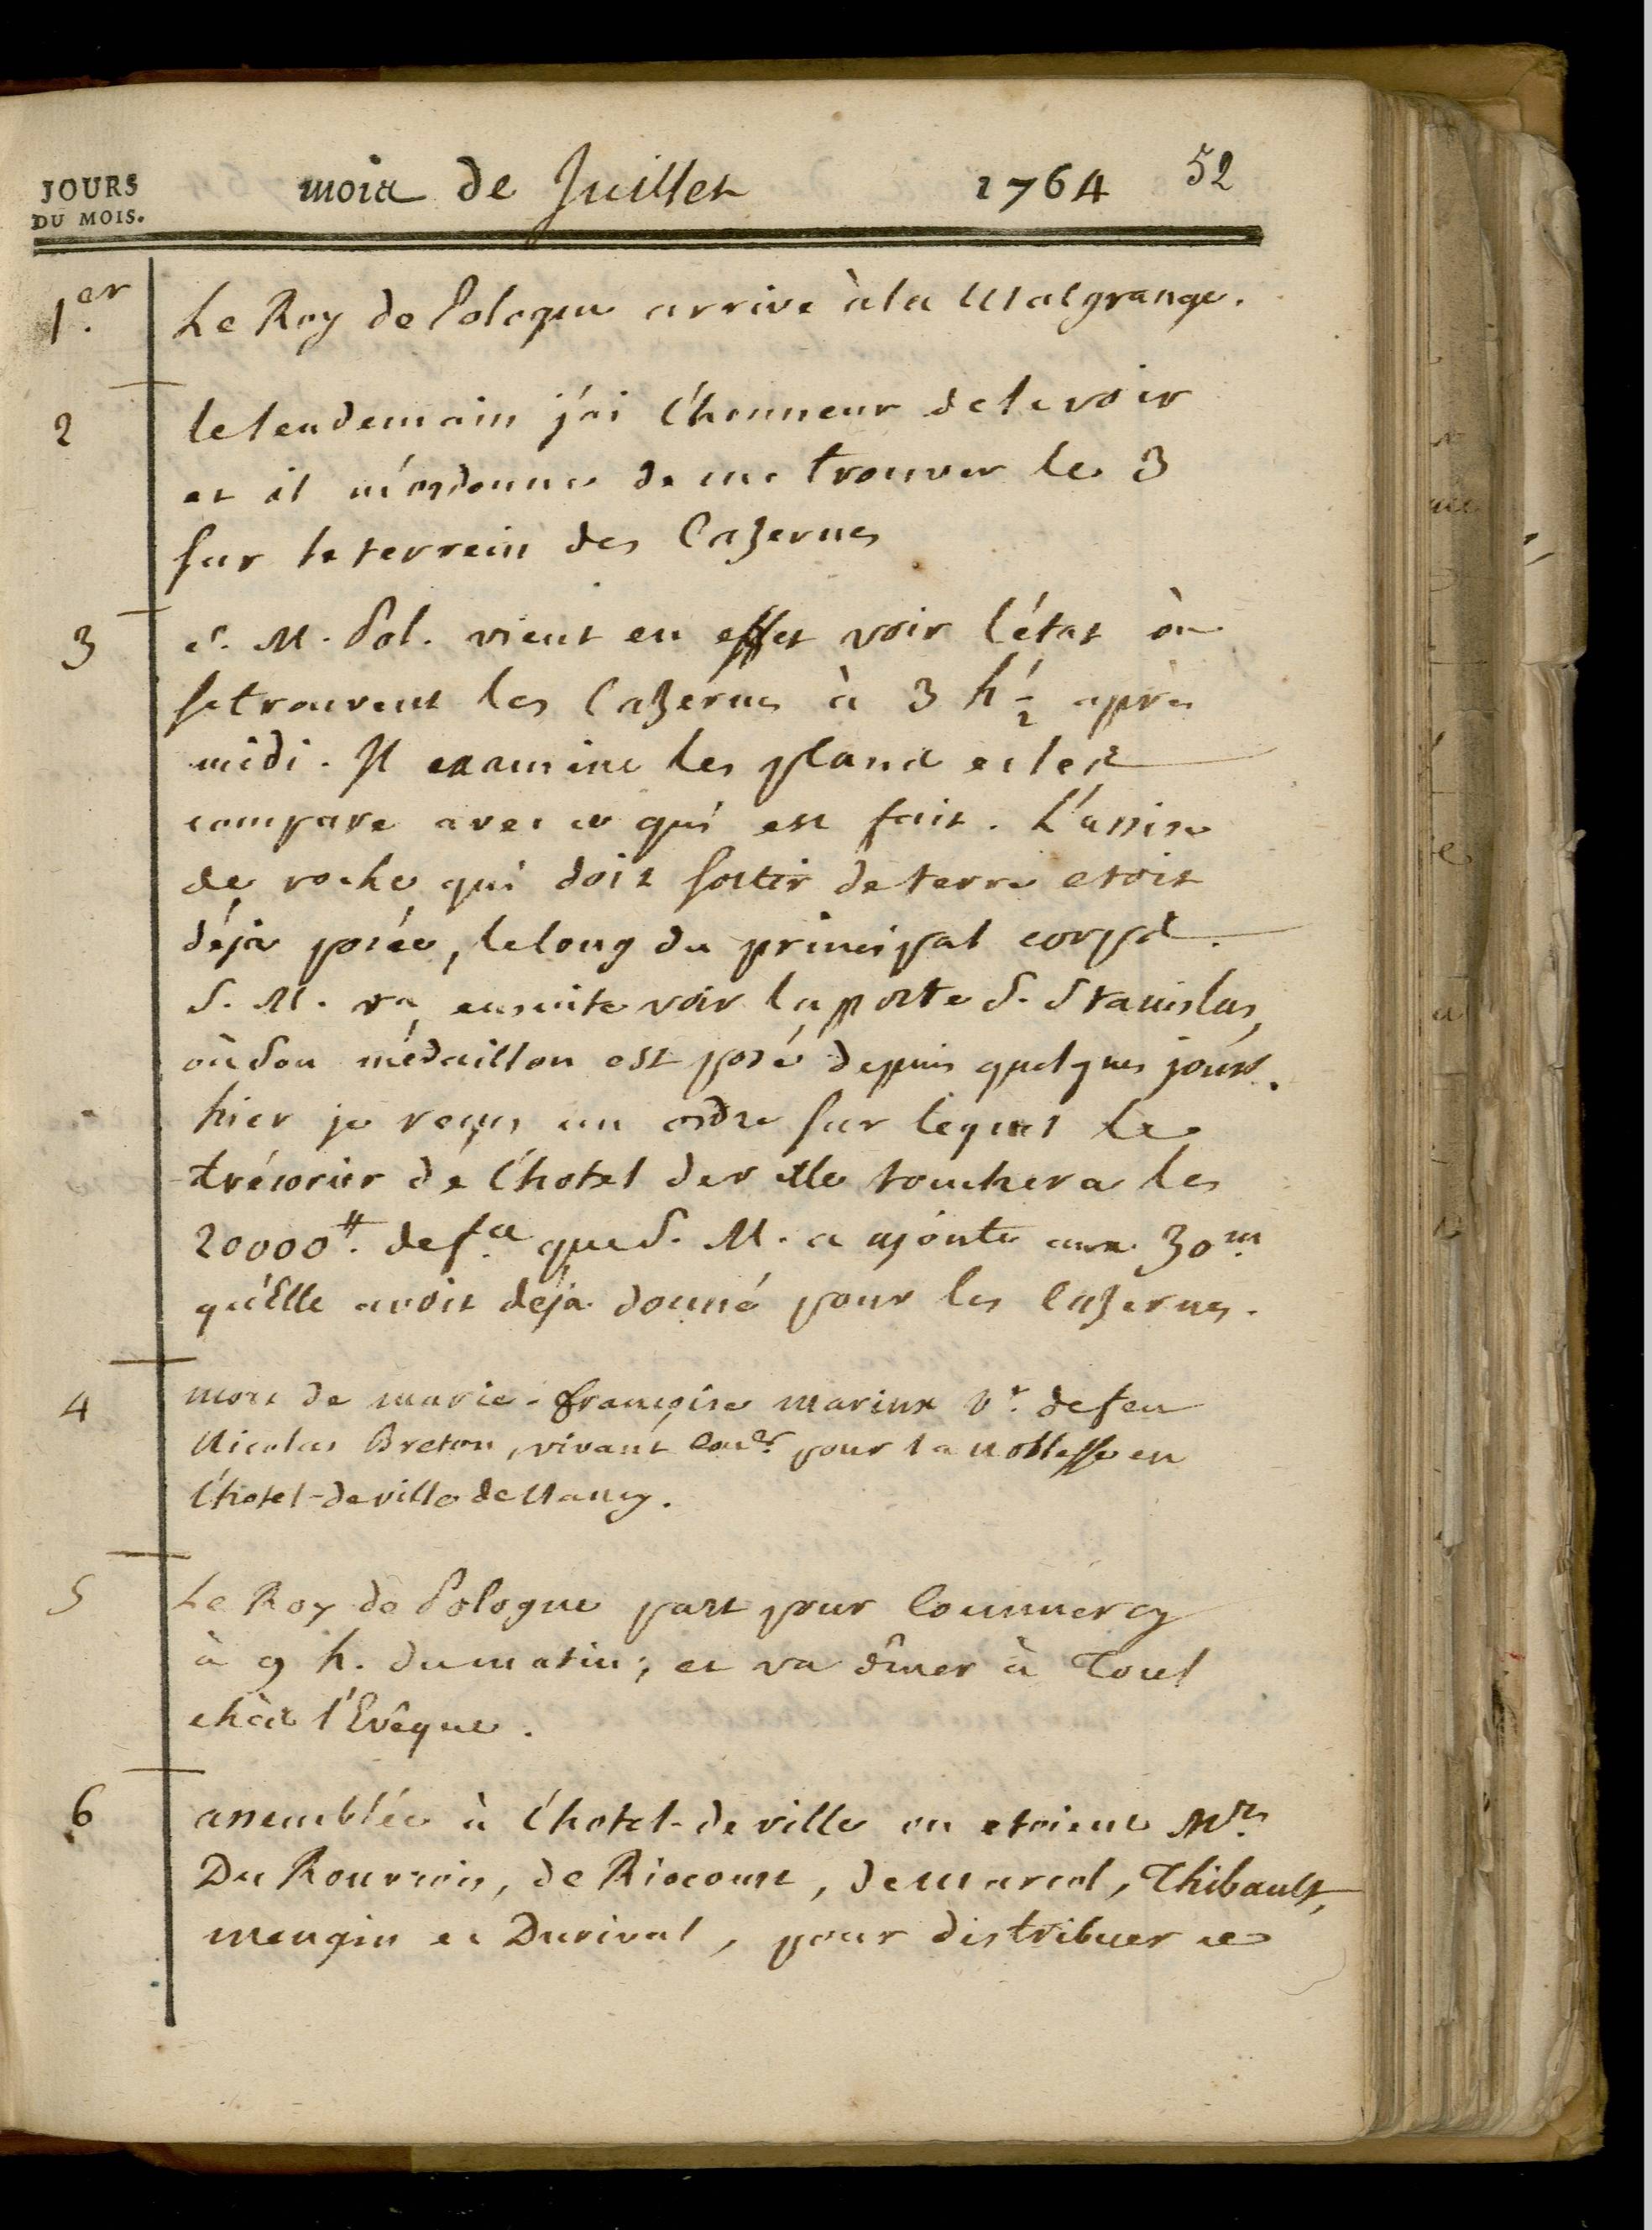 JOURS
DU MOIS.
mois de Juillet 1764 52
1.er Le Roy de Pologne arrive à la Malgrange.
2 le lendemain j'ai l'honneur de le voir
et il m'ordonne de me trouver le 3
sur le terrein des Cazernes
3 S. M. Pol. vient en effet voir l'état où
se trouvent les Cazernes à 3 h 1/2 après
midi. Il examine les plans et les
compare avec ce qui est fait. L'assise
de roche qui doit sortir de terre etoit
déja posée, le long du principal corps.
S. M. va ensuite voir la porte S. Stanislas,
où son médaillon est posé depuis quelques jours.
hier je reçus un ordre sur lequel le
trésorier de l'hotel de ville touchera les
20000 ₶. de f.ce que S. M. a ajouté aux 30.m
qu'Elle avoit déja donné pour les Cazernes.
4 mort de marie-françoise marine v.e de feu
Nicolas Breton, vivant Con.er pour la noblesse en
l'hotel-de ville de Nancy.
5 Le Roy de Pologne part pour Commercy
à 9 h. du matin; et va dîner à Toul
chès l'Evêque.
6 assemblée à l'hotel-de ville ou etoient M.rs
Du Rouvrois, de Riocourt, de Marcol, Thibault,
mengin et Durival, pour distribuer ce